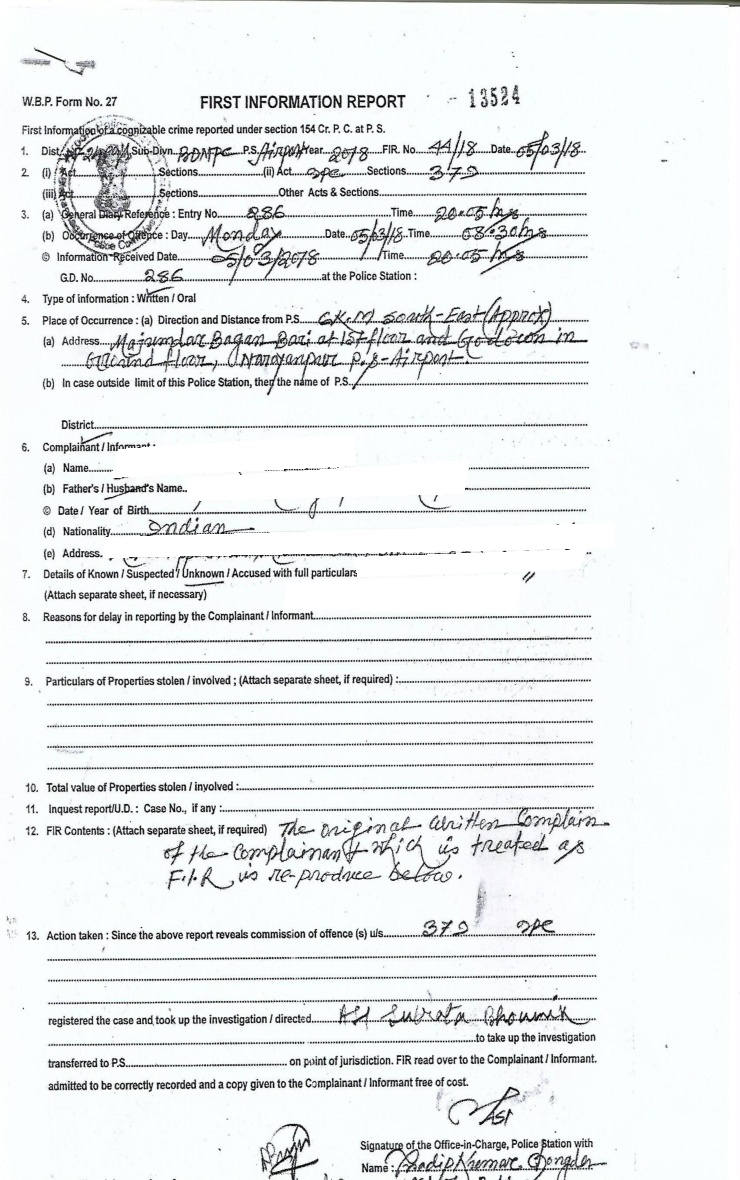 13524
W.B.P. Form No. 27 FIRST INFORMATION REPORT
First Information of a cognizable crime reported under section 154 Cr. P. C. at P. S.
1. Dist. Sub-Divn. BDNPC P.S. Airport Year 2018 FIR. No. 44/18 Date 05/03/18
2. (i) Act Sections (ii) Act IPC Sections 379
(iii) Act Sections Other Acts & Sections
3. (a) General Diary Reference : Entry No. 286 Time 20.05 hrs
(b) Occurrence of Offence : Day Monday Date 05/03/18 Time 08:30 hrs
© Information Received Date 05/03/2018 Time 20.05 hrs
G.D. No. 286 at the Police Station :
4. Type of information : Written / Oral
5. Place of Occurrence : (a) Direction and Distance from P.S. 6 K.M South-East (Approx)
(a) Address Majumdar Bagan Bari at 1st floor and Godown in
Ground floor, Narayanpur P.S-Airport.
(b) In case outside limit of this Police Station, then the name of P.S.
District
6. Complainant / Informant
(a) Name
(b) Father's / Husband's Name..
© Date / Year of Birth
(d) Nationality Indian
(e) Address.
7. Details of Known / Suspected / Unknown / Accused with full particulars
(Attach separate sheet, if necessary)
8. Reasons for delay in reporting by the Complainant / Informant
9. Particulars of Properties stolen / involved ; (Attach separate sheet, if required) :
10. Total value of Properties stolen / involved :
11. Inquest report/U.D. : Case No., if any :
12. FIR Contents : (Attach separate sheet, if required) The original written Complain
of the Complainant which is treated as
F.I.R is re-produce below.
13. Action taken : Since the above report reveals commission of offence (s) u/s 379 IPC
registered the case and took up the investigation / directed ASI Subrata Bhowmik
to take up the investigation
transferred to P.S. on point of jurisdiction. FIR read over to the Complainant / Informant.
admitted to be correctly recorded and a copy given to the Complainant / Informant free of cost.
ASI
Signature of the Office-in-Charge, Police Station with
Name : Pradip Kumar